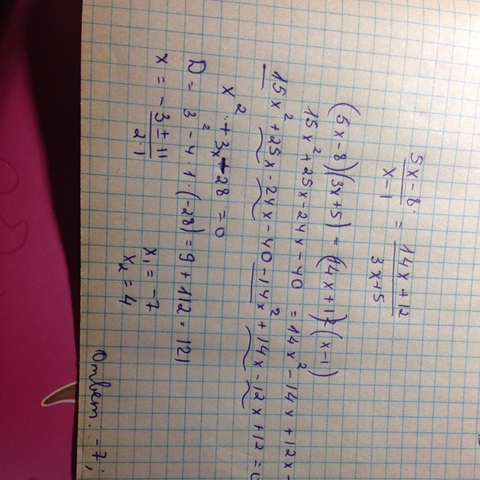 5x-8 / x-1 = 14x+12 / 3x+5
(5x-8)(3x+5) = (14x+12)(x-1)
15x²+25x-24x-40 = 14x²-14x+12x-
15x²+25x-24x-40-14x²+14x-12x+12=0
x²+3x-28=0
D = 3²-4·1·(-28)=9+112=121
x = -3±11 / 2·1
x₁=-7
x₂=4
Ответ: -7;